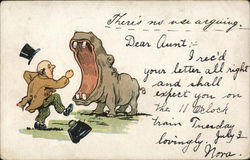 There's no use arguing.
Dear Aunt:-
I rec'd
your letter all right
and shall
expect you on
the 11 O'clock
train Tuesday
lovingly. July 3
Nora